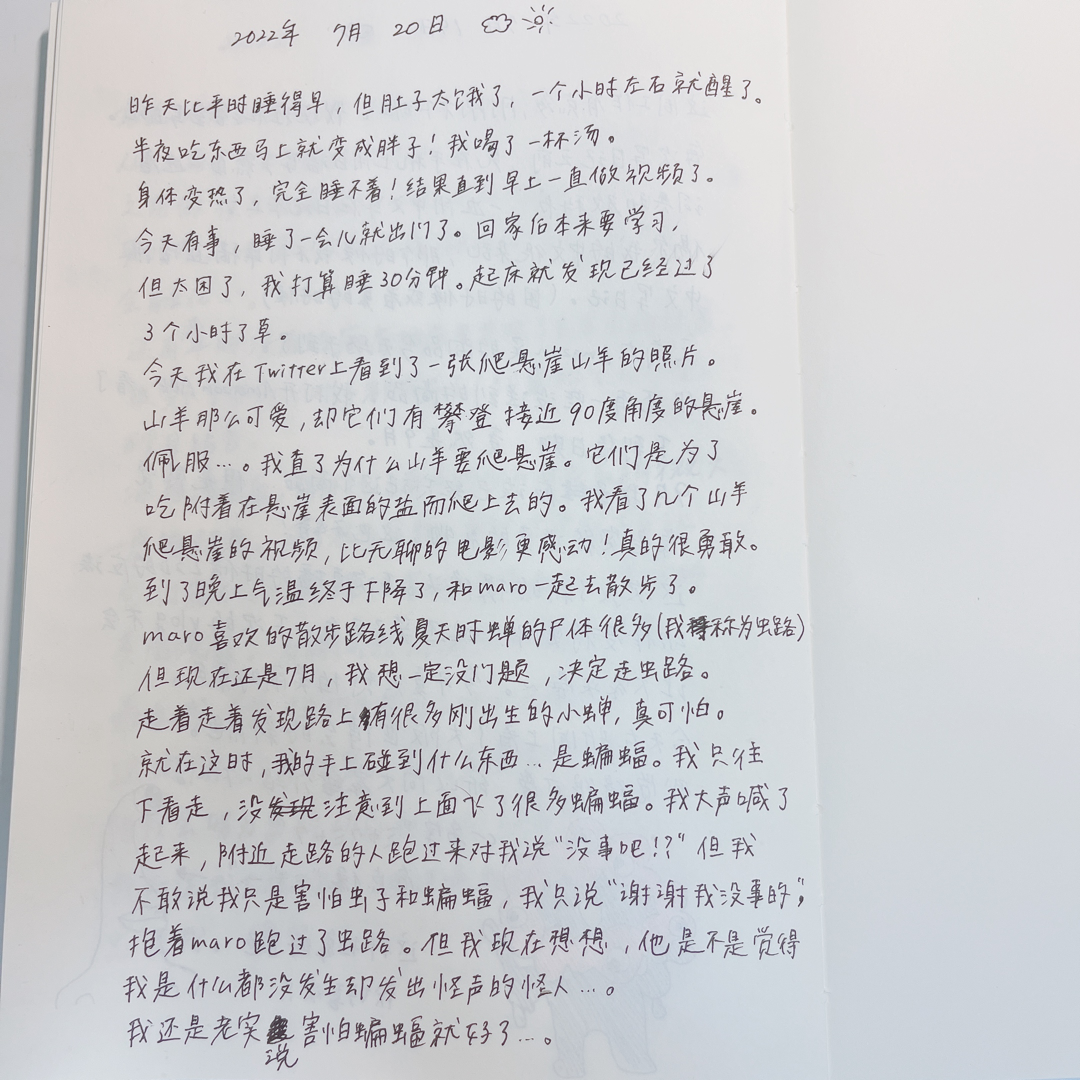 2022年 7月 20日
昨天比平时睡得早，但肚子太饿了，一个小时左右就醒了。
半夜吃东西马上就变成胖子！我喝了一杯汤。
身体变热了，完全睡不着！结果直到早上一直做视频了。
今天有事，睡了一会儿就出门了。回家后本来要学习，
但太困了，我打算睡30分钟。起床就发现已经过了
3个小时了草。
今天我在Twitter上看到了一张爬悬崖山羊的照片。
山羊那么可爱，却它们有攀登接近90度角度的悬崖。
佩服…。我查了为什么山羊要爬悬崖。它们是为了
吃附着在悬崖表面的盐而爬上去的。我看了几个山羊
爬悬崖的视频，比无聊的电影更感动！真的很勇敢。
到了晚上气温终于下降了，和maro一起去散步了。
maro喜欢的散步路线夏天时蝉的尸体很多(我称为虫路)
但现在还是7月，我想一定没门题，决定走虫路。
走着走着发现路上有很多刚出生的小蝉，真可怕。
就在这时，我的手上碰到什么东西…是蝙蝠。我只往
下看走，没注意到上面飞了很多蝙蝠。我大声喊了
起来，附近走路的人跑过来对我说“没事吧！？”但我
不敢说我只是害怕虫子和蝙蝠，我只说“谢谢我没事的”，
抱着maro跑过了虫路。但我现在想想，他是不是觉得
我是什么都没发生却发出怪声的怪人…。
我还是老实说害怕蝙蝠就好了…。